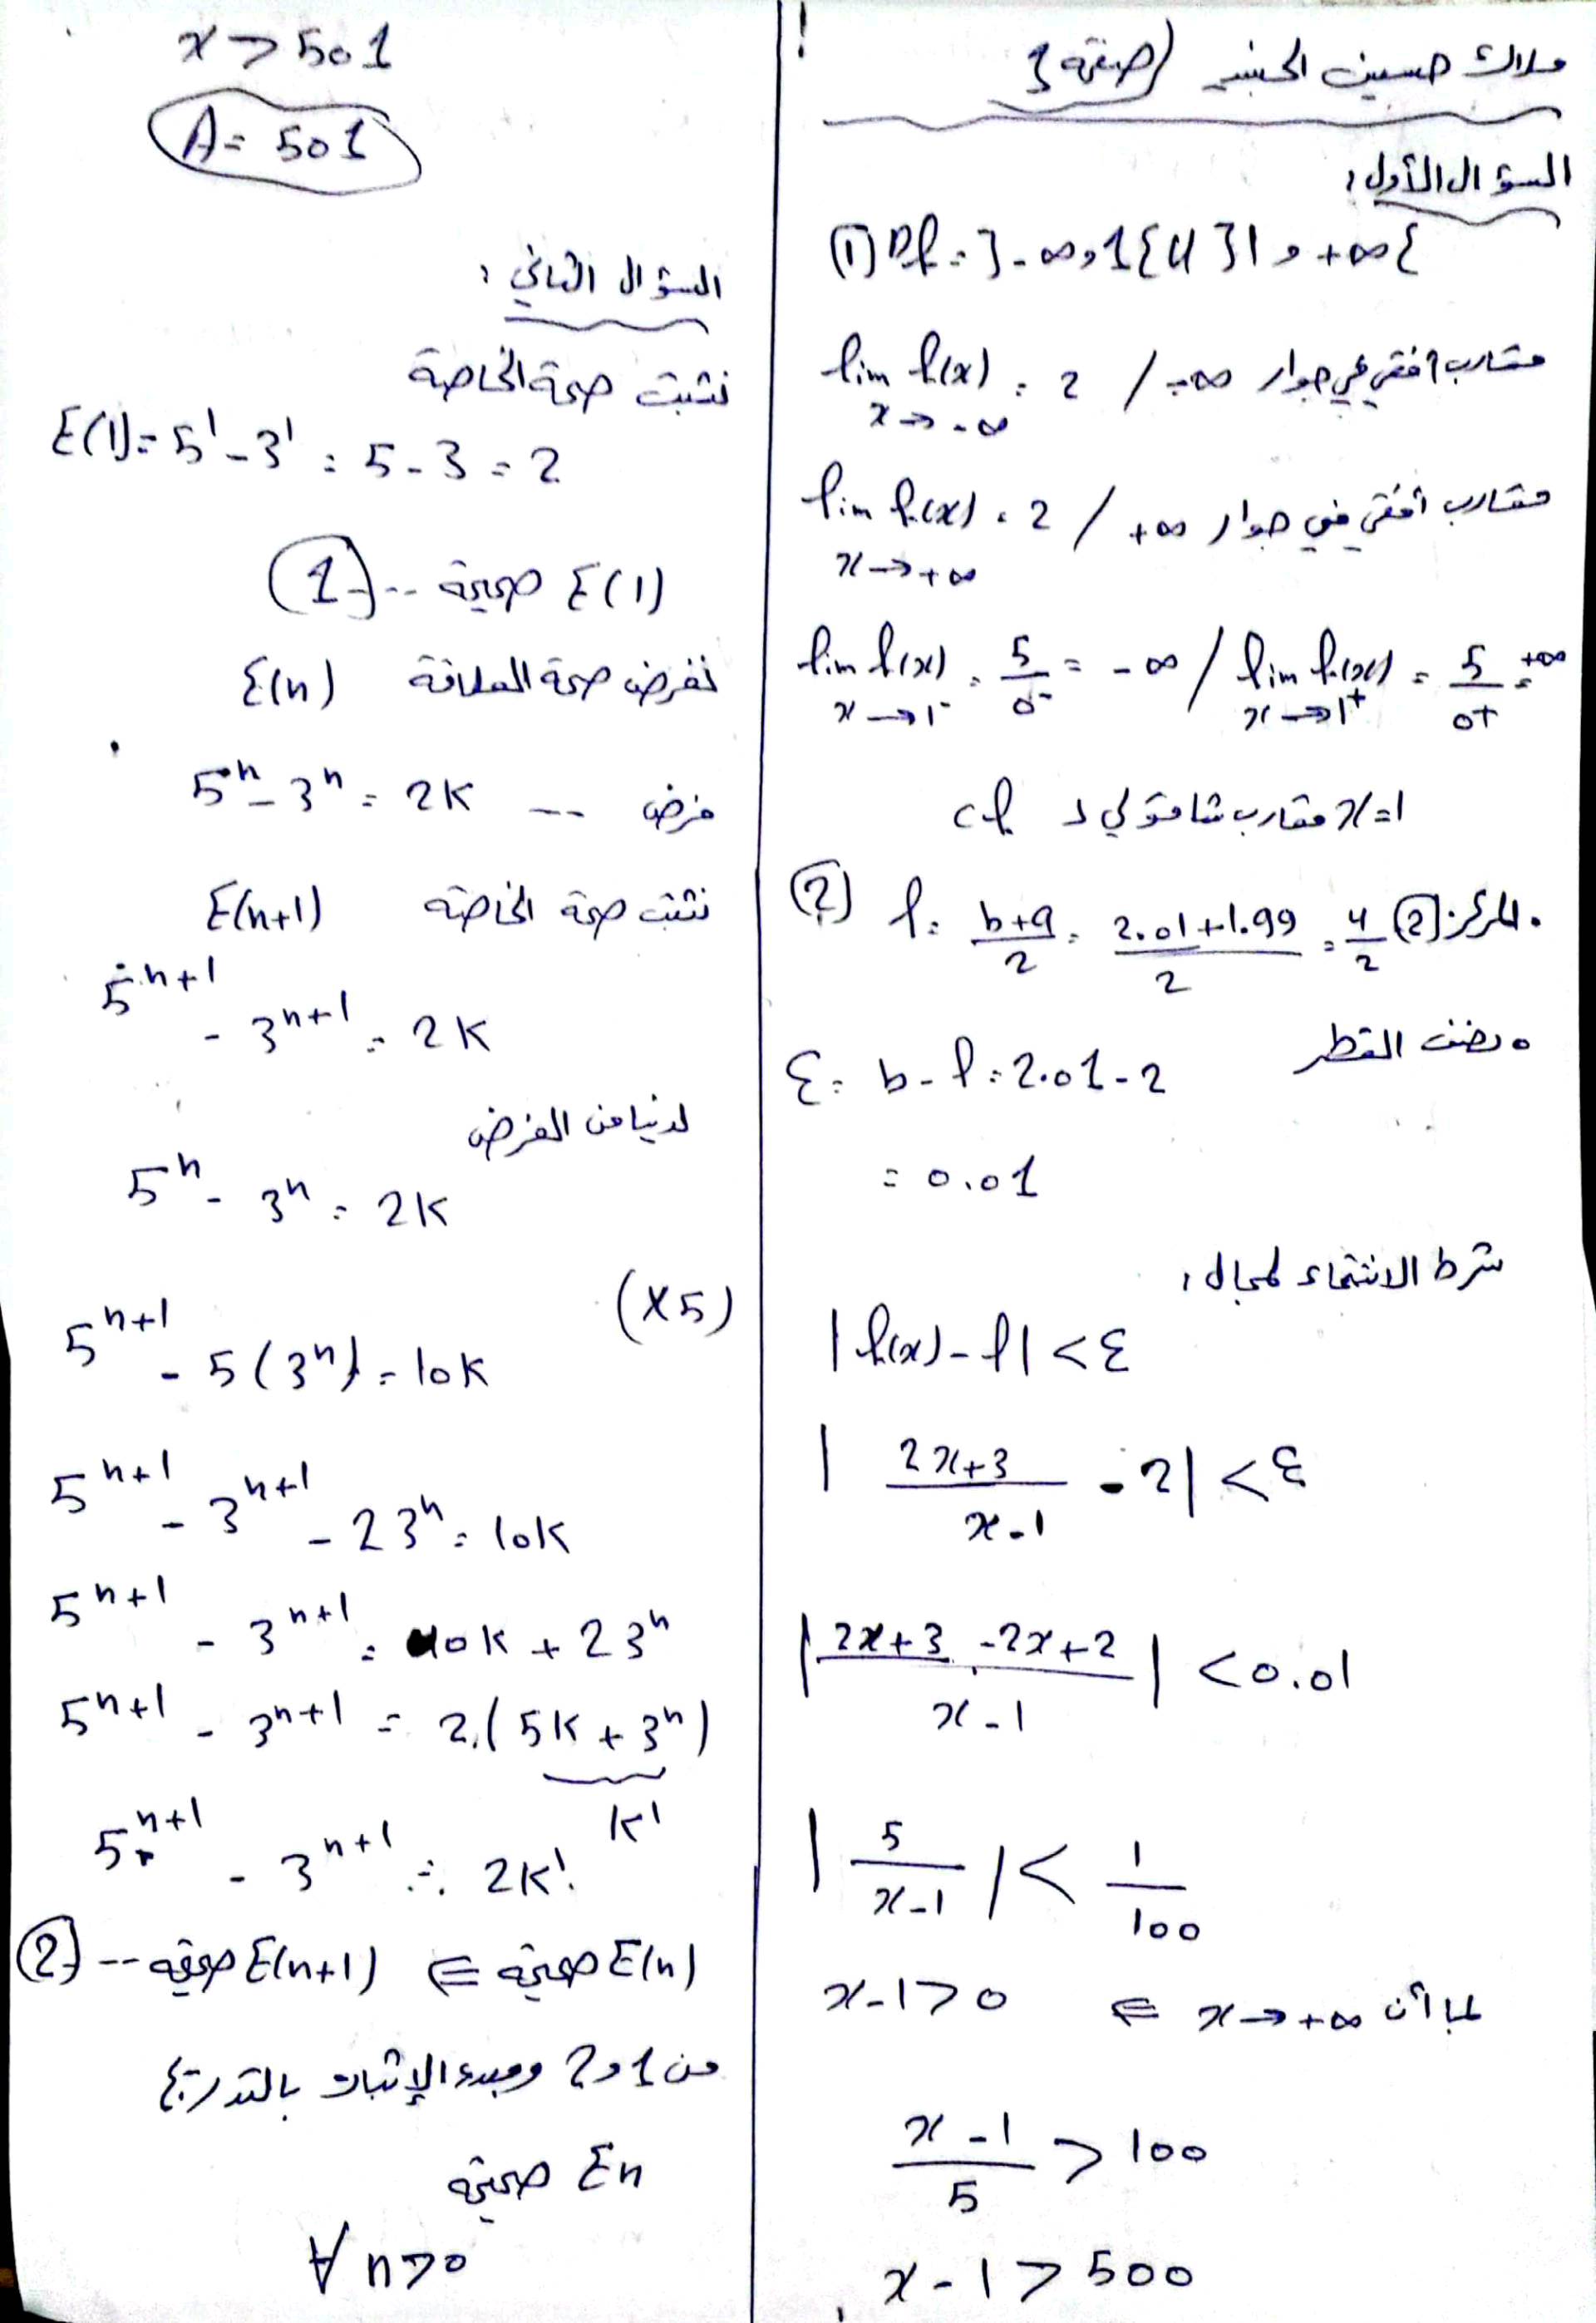 ملاك حسين الخضر (صفحة 1
السؤال الأول:
① Df = ]-∞, 1[ U ]1, +∞[
lim f(x) = 2 / -∞ مقارب أفقي في جوار
x→-∞
lim f(x) = 2 / +∞ مقارب أفقي في جوار
x→+∞
lim f(x) = 5/0- = -∞ / lim f(x) = 5/0+ = +∞
x→1- x→1+
x=1 مقارب شاقولي لـ cf
② l = (b+a)/2 = (2.01+1.99)/2 = 4/2 ② المركز:
ε = b - l = 2.01 - 2 نصف القطر
= 0.01
شرط الانتماء لمجال:
|f(x) - l| < ε
|(2x+3)/(x-1) - 2| < ε
|(2x+3-2x+2)/(x-1)| < 0.01
|5/(x-1)| < 1/100
لما أن x→+∞ ⇐ x-1>0
(x-1)/5 > 100
x-1 > 500
x > 501
A = 501
السؤال الثاني:
نثبت صحة الخاصة
E(1) = 5¹ - 3¹ = 5 - 3 = 2
E(1) صحيحة -- ①
نفرض صحة العلاقة E(n)
5ⁿ - 3ⁿ = 2K -- فرض
نثبت صحة الخاصة E(n+1)
5ⁿ⁺¹ - 3ⁿ⁺¹ = 2K
لدينا من الفرض
5ⁿ - 3ⁿ = 2K
(x5)
5ⁿ⁺¹ - 5(3ⁿ) = 10K
5ⁿ⁺¹ - 3ⁿ⁺¹ - 2 3ⁿ = 10K
5ⁿ⁺¹ - 3ⁿ⁺¹ = 10K + 2 3ⁿ
5ⁿ⁺¹ - 3ⁿ⁺¹ = 2.(5K + 3ⁿ)
K'
5ⁿ⁺¹ - 3ⁿ⁺¹ = 2K'
E(n) صحيحة ⇐ E(n+1) صحيحة -- ②
من 1 و 2 ومبدء الإثبات بالتدريج
En صحيحة
∀ n>0